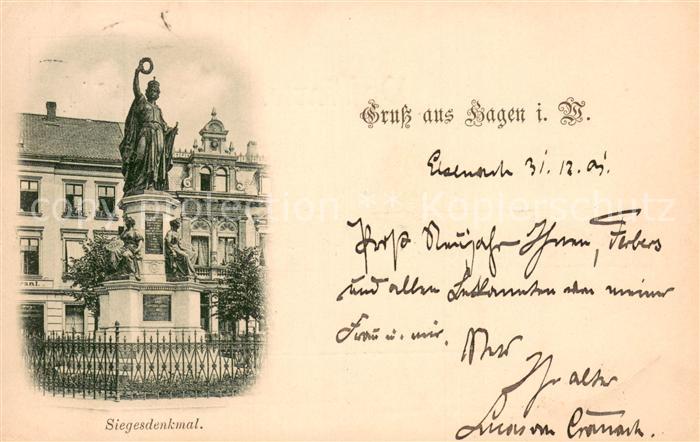 Gruß aus Hagen i. W.
Eisenach 31.12.01.
Prosit Neujahr Ihnen, Ferbers
und allen Bekannten von meiner
Frau u. mir.
Ihr alter
Lucas von Cranach.
Siegesdenkmal.
** copyright protection ** Kopierschutz